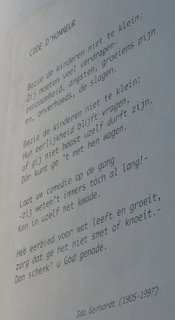 CODE D'HONNEUR
Bezie de kinderen niet te klein:
Zij moeten veel verdragen:
eenzaamheid, angsten, groeiens pijn
en, onverhoeds, de slagen.
Bezie de kinderen niet te klein:
Hun eerlijkheid blijft vragen,
of gij niet haast uzelf durft zijn.
Dan kunt ge 't met hen wagen.
Laat uw comedie op de gang
-zij weten 't immers tóch al lang!-
Ken in uzelf het kwade.
Heb eerbied voor wat leeft en groeit,
zorg dat ge het niet smet of knoeit.-
Dan schenk' u God genade.
Ida Gerhardt (1905-1997)